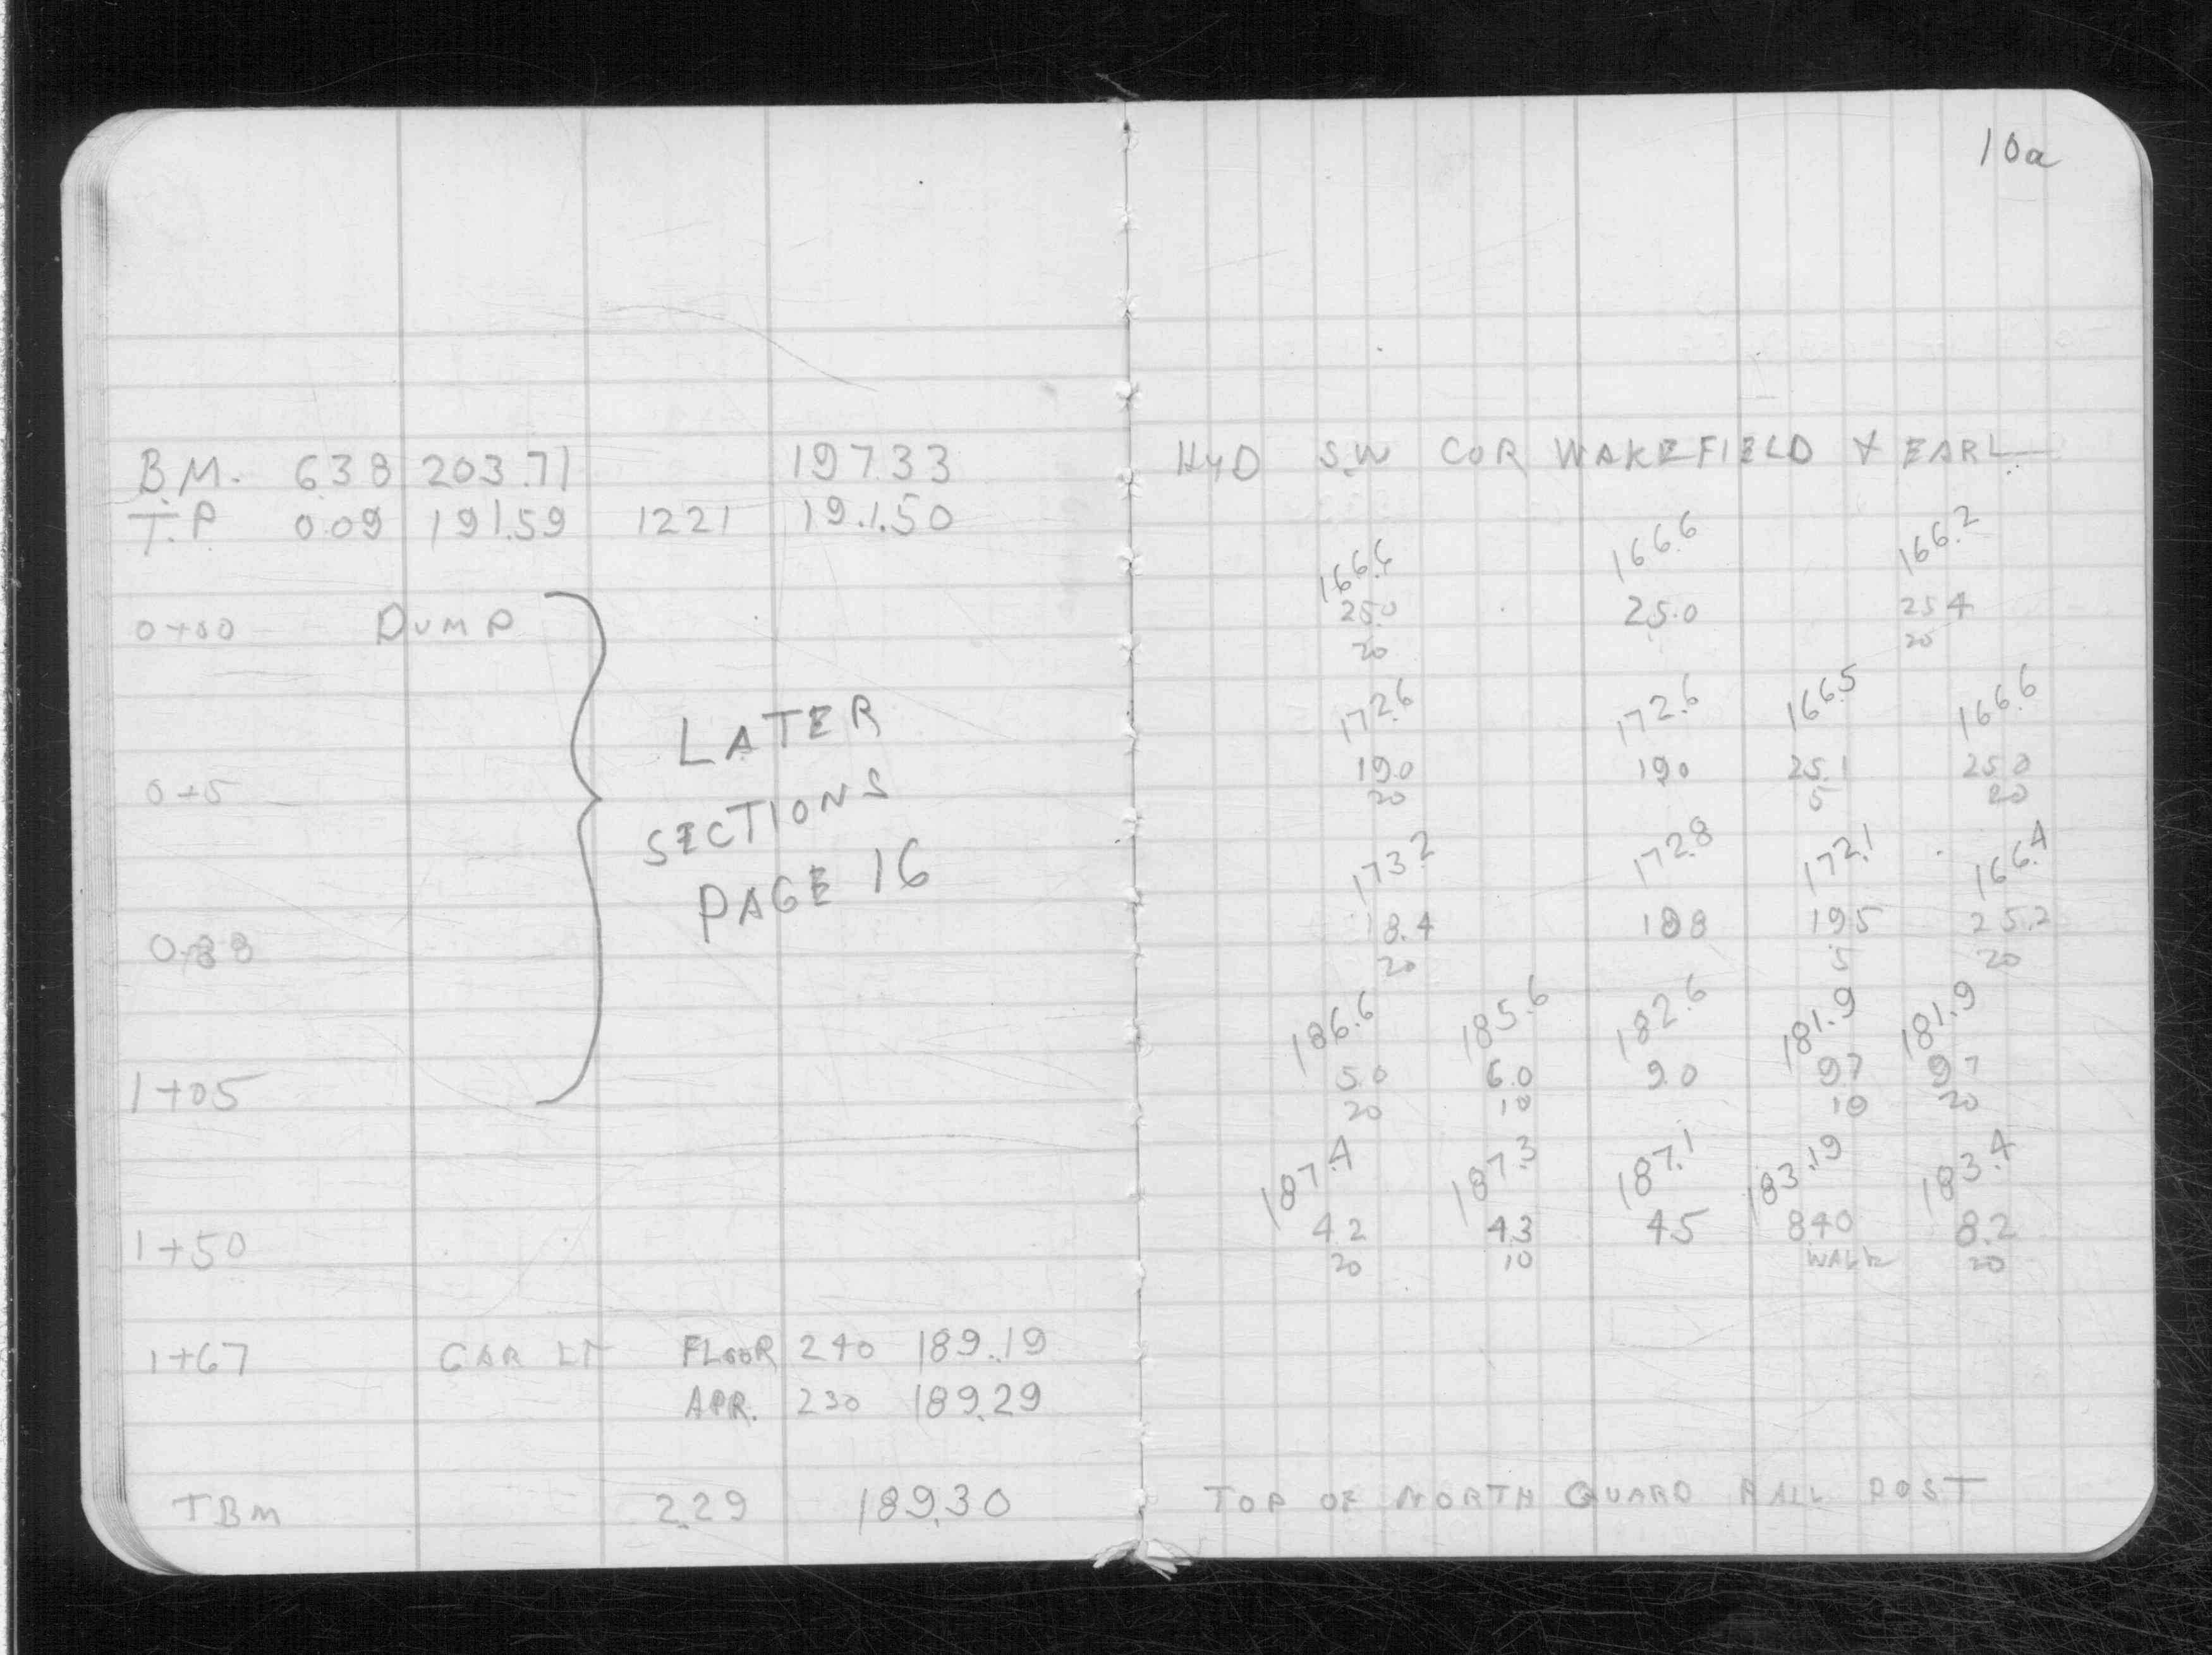 10a
B.M. 6.38 203.71 197.33 HYD S.W COR WAKEFIELD & EARL
T.P 0.09 191.59 12.21 191.50
166.6 166.6 166.2
0+00 DUMP 25.0 25.0 25.4
20 20
LATER
SECTIONS
PAGE 16
172.6 172.6 166.5 166.6
0+5 19.0 19.0 25.1 25.0
20 5 20
173.2 172.8 172.1 166.4
18.4 18.8 19.5 25.2
20 5 20
186.6 185.6 182.6 181.9 181.9
1+05 5.0 6.0 9.0 9.7 9.7
20 10 10 20
187.4 187.3 187.1 183.19 183.4
1+50 4.2 4.3 4.5 840 8.2
20 10 WALK 20
1+67 GAR LT FLOOR 240 189.19
APR. 230 189.29
TBM 2.29 189.30 TOP OF NORTH GUARD RAIL POST